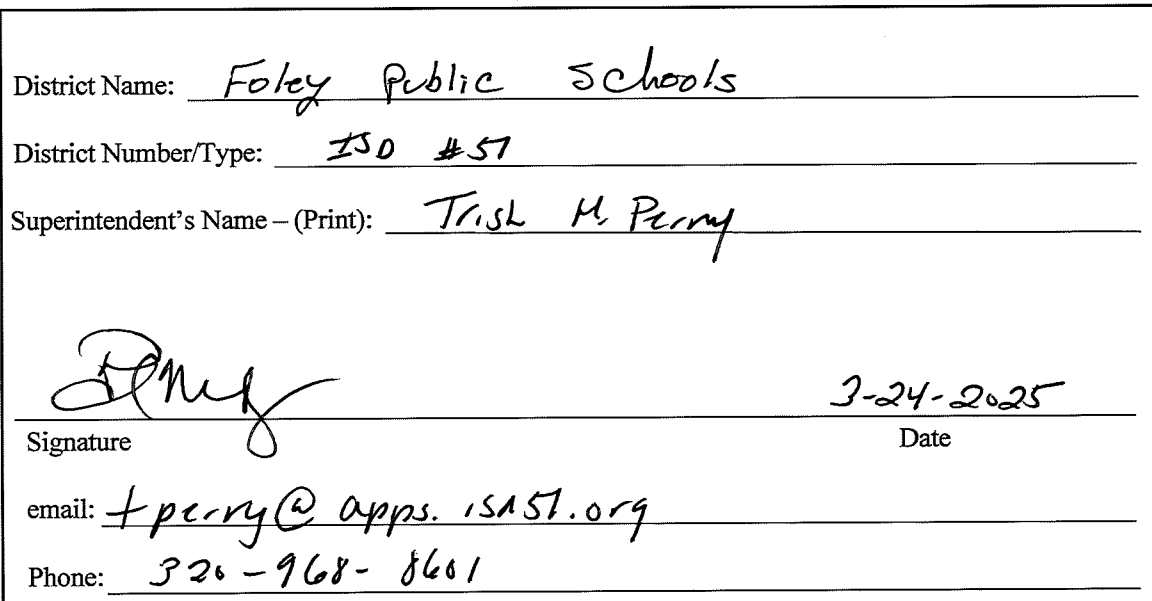 District Name: Foley Public Schools
District Number/Type: ISD #51
Superintendent's Name – (Print): Trish M. Perry
3-24-2025
Signature Date
email: tperry@apps.isd51.org
Phone: 320-968-8601